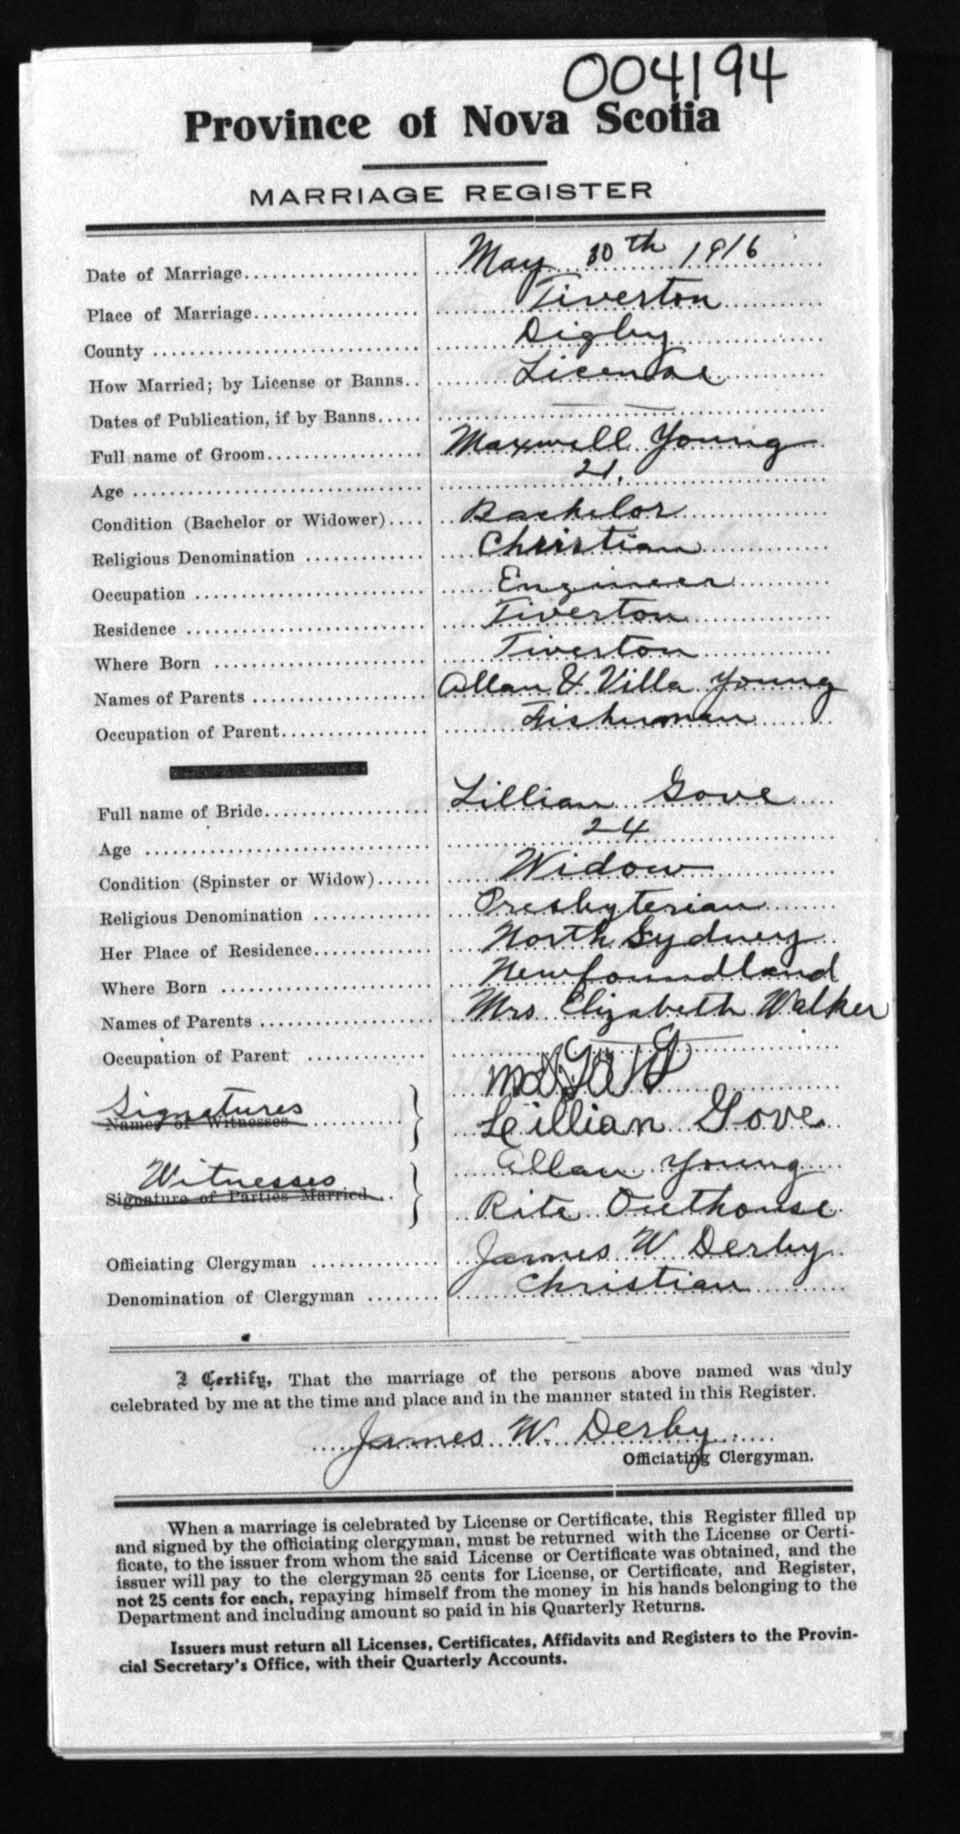 004194
Province of Nova Scotia
MARRIAGE REGISTER
Date of Marriage.................... May 10th 1916
Place of Marriage................... Tiverton
County .............................. Digby
How Married; by License or Banns.. License
Dates of Publication, if by Banns..... ——
Full name of Groom.................. Maxwell Young
Age .................................. 21.
Condition (Bachelor or Widower).... Bachelor
Religious Denomination ............. Christian
Occupation .......................... Engineer
Residence ........................... Tiverton
Where Born ......................... Tiverton
Names of Parents ................... Allan & Villa Young
Occupation of Parent................ Fisherman
Full name of Bride................... Lillian Gove
Age .................................. 24
Condition (Spinster or Widow)...... Widow
Religious Denomination ............. Presbyterian
Her Place of Residence.............. North Sydney
Where Born ......................... Newfoundland
Names of Parents ................... Mrs. Elizabeth Walker
Occupation of Parent ............... ——
Signatures
Names of Witnesses ............ } Lillian Gove
Witnesses Allan Young
Signature of Parties Married .. } Rita Outhouse
Officiating Clergyman .............. James W Derby
Denomination of Clergyman ........ Christian
I Certify, That the marriage of the persons above named was duly
celebrated by me at the time and place and in the manner stated in this Register.
James W. Derby
Officiating Clergyman.
When a marriage is celebrated by License or Certificate, this Register filled up
and signed by the officiating clergyman, must be returned with the License or Certi-
ficate, to the issuer from whom the said License or Certificate was obtained, and the
issuer will pay to the clergyman 25 cents for License, or Certificate, and Register,
not 25 cents for each, repaying himself from the money in his hands belonging to the
Department and including amount so paid in his Quarterly Returns.
Issuers must return all Licenses, Certificates, Affidavits and Registers to the Provin-
cial Secretary's Office, with their Quarterly Accounts.